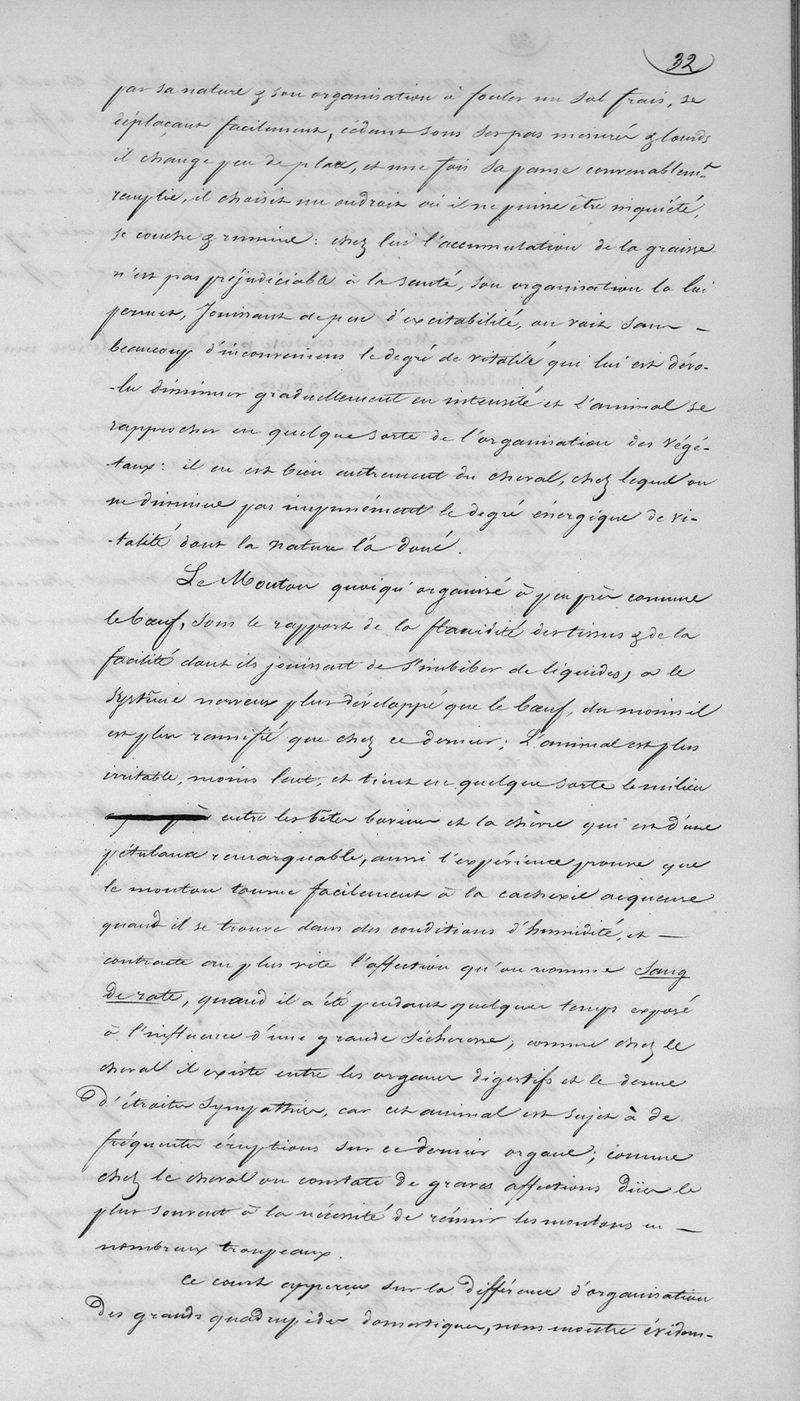 32
par sa nature & son organisation à fouler un sol frais, se
déplaçant facilement, cédant sous ses pas mesurés & lourds
il change peu de place, et une fois sa panse convenablemt
remplie, il choisit un endroit où il ne puisse être inquiété,
se couche & rumine : chez lui l'accumulation de la graisse
n'est pas préjudiciable à la santé, son organisation la lui
permet, Jouissant de peu d'excitabilité, on voit sans —
beaucoup d'inconvéniens le degré de vitalité qui lui est dévo-
-lu diminuer graduellement en intensité et L'animal se
rapprocher en quelque sorte de l'organisation des végé-
taux : il en est bien autrement du cheval, chez lequel on
ne diminue pas impunément le degré énergique de vi-
-talité dont la nature l'a doué.
Le Mouton quoiqu'organisé à peu près comme
le bœuf, sous le rapport de la flacidité des tissus & de la
facilité dont ils jouissent de s'imbiber de liquides, a le
système nerveux plus développé que le bœuf, du moins il
est plus ramifié que chez ce dernier ; L'animal est plus
irritable, moins lent, et tient en quelque sorte le milieu
entre les bêtes bovines et la chèvre qui est d'une
pétulance remarquable, aussi l'expérience prouve que
le mouton tourne facilement à la cachexie aqueuse
quand il se trouve dans des conditions d'humidité, et —
contracte au plus vite l'affection qu'on nomme Sang
de rate, quand il a été pendant quelques temps exposé
à l'influence d'une grande sécheresse ; comme chez le
cheval il existe entre les organes digestifs et le derme
d'étroites sympathies, car cet animal est sujet à de
fréquentes éruptions sur ce dernier organe ; comme
chez le cheval on constate de graves affections dües le
plus souvent à la nécessité de réunir les moutons en —
nombreux troupeaux.
Ce court apperçu sur la différence d'organisation
des grands quadrupèdes domestiques, nous montre évidem-